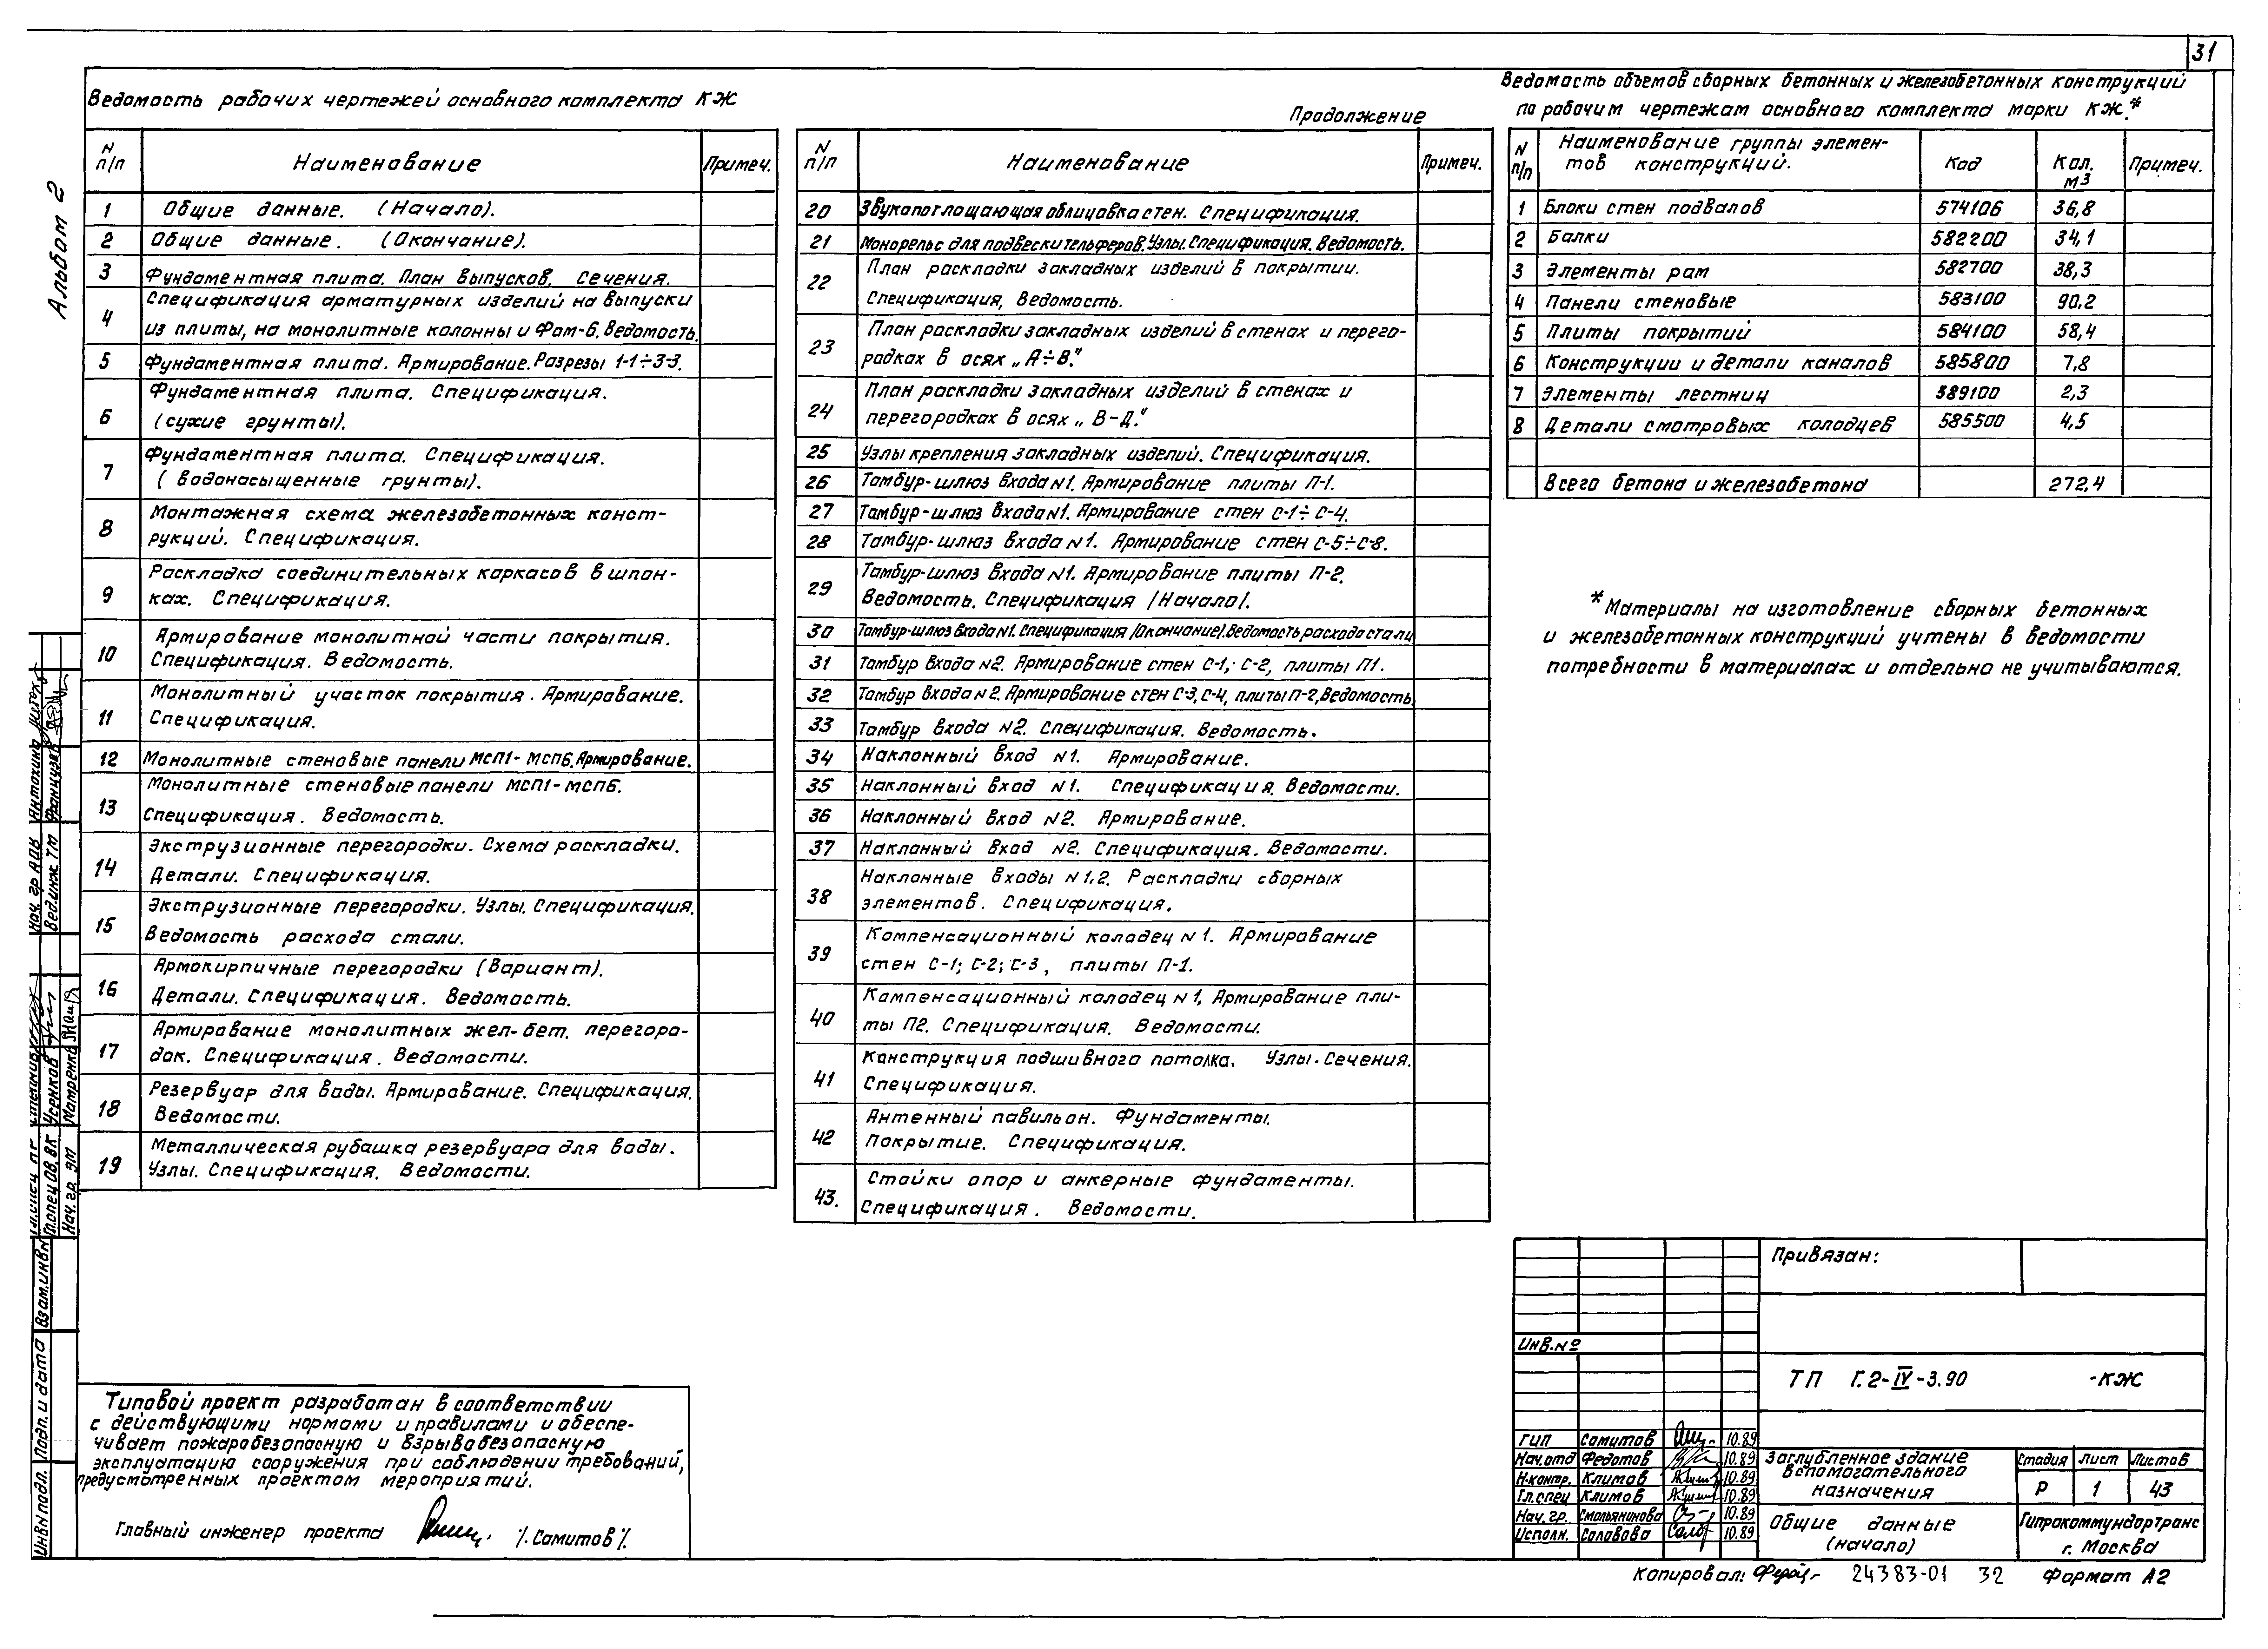 31
Альбом 2
Ведомость рабочих чертежей основного комплекта КЖ
N п/п Наименование Примеч.
1 Общие данные. (Начало).
2 Общие данные. (Окончание).
3 Фундаментная плита. План выпусков. Сечения.
4 Спецификация арматурных изделий на выпуски
из плиты, на монолитные колонны и Фом-6. Ведомость.
5 Фундаментная плита. Армирование. Разрезы 1-1÷3-3.
6 Фундаментная плита. Спецификация.
(сухие грунты).
7 Фундаментная плита. Спецификация.
(водонасыщенные грунты).
8 Монтажная схема железобетонных конст-
рукций. Спецификация.
9 Раскладка соединительных каркасов в шпон-
ках. Спецификация.
10 Армирование монолитной части покрытия.
Спецификация. Ведомость.
11 Монолитный участок покрытия. Армирование.
Спецификация.
12 Монолитные стеновые панели МСП1-МСП6. Армирование.
13 Монолитные стеновые панели МСП1-МСП6.
Спецификация. Ведомость.
14 Экструзионные перегородки. Схема раскладки.
Детали. Спецификация.
15 Экструзионные перегородки. Узлы. Спецификация.
Ведомость расхода стали.
16 Армокирпичные перегородки (Вариант).
Детали. Спецификация. Ведомость.
17 Армирование монолитных жел-бет. перегоро-
док. Спецификация. Ведомости.
18 Резервуар для воды. Армирование. Спецификация.
Ведомости.
19 Металлическая рубашка резервуара для воды.
Узлы. Спецификация. Ведомости.
Продолжение
N п/п Наименование Примеч.
20 Звукопоглощающая облицовка стен. Спецификация.
21 Монорельс для подвески тельферов. Узлы. Спецификация. Ведомость.
22 План раскладки закладных изделий в покрытии.
Спецификация, Ведомость.
23 План раскладки закладных изделий в стенах и перего-
родках в осях „А÷В."
24 План раскладки закладных изделий в стенах и
перегородках в осях „В-Д."
25 Узлы крепления закладных изделий. Спецификация.
26 Тамбур-шлюз входа N1. Армирование плиты П-1.
27 Тамбур-шлюз входа N1. Армирование стен С-1÷С-4.
28 Тамбур-шлюз входа N1. Армирование стен С-5÷С-8.
29 Тамбур-шлюз входа N1. Армирование плиты П-2.
Ведомость. Спецификация /Начало/.
30 Тамбур-шлюз входа N1. Спецификация /Окончание/. Ведомость расхода стали
31 Тамбур входа N2. Армирование стен С-1; С-2, плиты П1.
32 Тамбур входа N2. Армирование стен С-3, С-4, плиты П-2, Ведомость.
33 Тамбур входа N2. Спецификация. Ведомость.
34 Наклонный вход N1. Армирование.
35 Наклонный вход N1. Спецификация. Ведомости.
36 Наклонный вход N2. Армирование.
37 Наклонный вход N2. Спецификация. Ведомости.
38 Наклонные входы N1,2. Раскладки сборных
элементов. Спецификация.
39 Компенсационный колодец N1. Армирование
стен С-1; С-2; С-3, плиты П-1.
40 Компенсационный колодец N1, Армирование пли-
ты П2. Спецификация. Ведомости.
41 Конструкция подшивного потолка. Узлы. Сечения.
Спецификация.
42 Антенный павильон. Фундаменты.
Покрытие. Спецификация.
43. Стойки опор и анкерные фундаменты.
Спецификация. Ведомости.
Ведомость объемов сборных бетонных и железобетонных конструкций
по рабочим чертежам основного комплекта марки КЖ.*
N п/п Наименование группы элемен-
тов конструкций. Код Кол. м3 Примеч.
1 Блоки стен подвалов 574106 36,8
2 Балки 582200 34,1
3 Элементы рам 582700 38,3
4 Панели стеновые 583100 90.2
5 Плиты покрытий 584100 58,4
6 Конструкции и детали каналов 585800 7,8
7 Элементы лестниц 589100 2,3
8 Детали смотровых колодцев 585500 4,5
Всего бетона и железобетона 272,4
*Материалы на изготовление сборных бетонных
и железобетонных конструкций учтены в ведомости
потребности в материалах и отдельно не учитываются.
Типовой проект разработан в соответствии
с действующими нормами и правилами и обеспе-
чивает пожаробезопасную и взрывобезопасную
эксплуатацию сооружения при соблюдении требований,
предусмотренных проектом мероприятий.
Главный инженер проекта /.Самитов/.
Привязан:
Инв.№
ТП Г.2-IV-3.90 -КЖ
ГИП Самитов 10.89
Нач.отд Федотов 10.89
Н.контр. Климов 10.89
Гл.спец Климов 10.89
Нач.гр. Смольянинова 10.89
Исполн. Соловова 10.89
Заглубленное здание
вспомогательного
назначения
Стадия Лист Листов
Р 1 43
Общие данные
(начало)
Гипрокоммундортранс
г. Москва
Копировал: 24383-01 32 Формат А2
Нач. гр АОВ Антохина
Вед.инж ТМ
Гл.спец ОВ, ВК Усенков
Нач. гр. ЭМ Матренко
Взам.инвN
Подп. и дата
ИнвN подл.